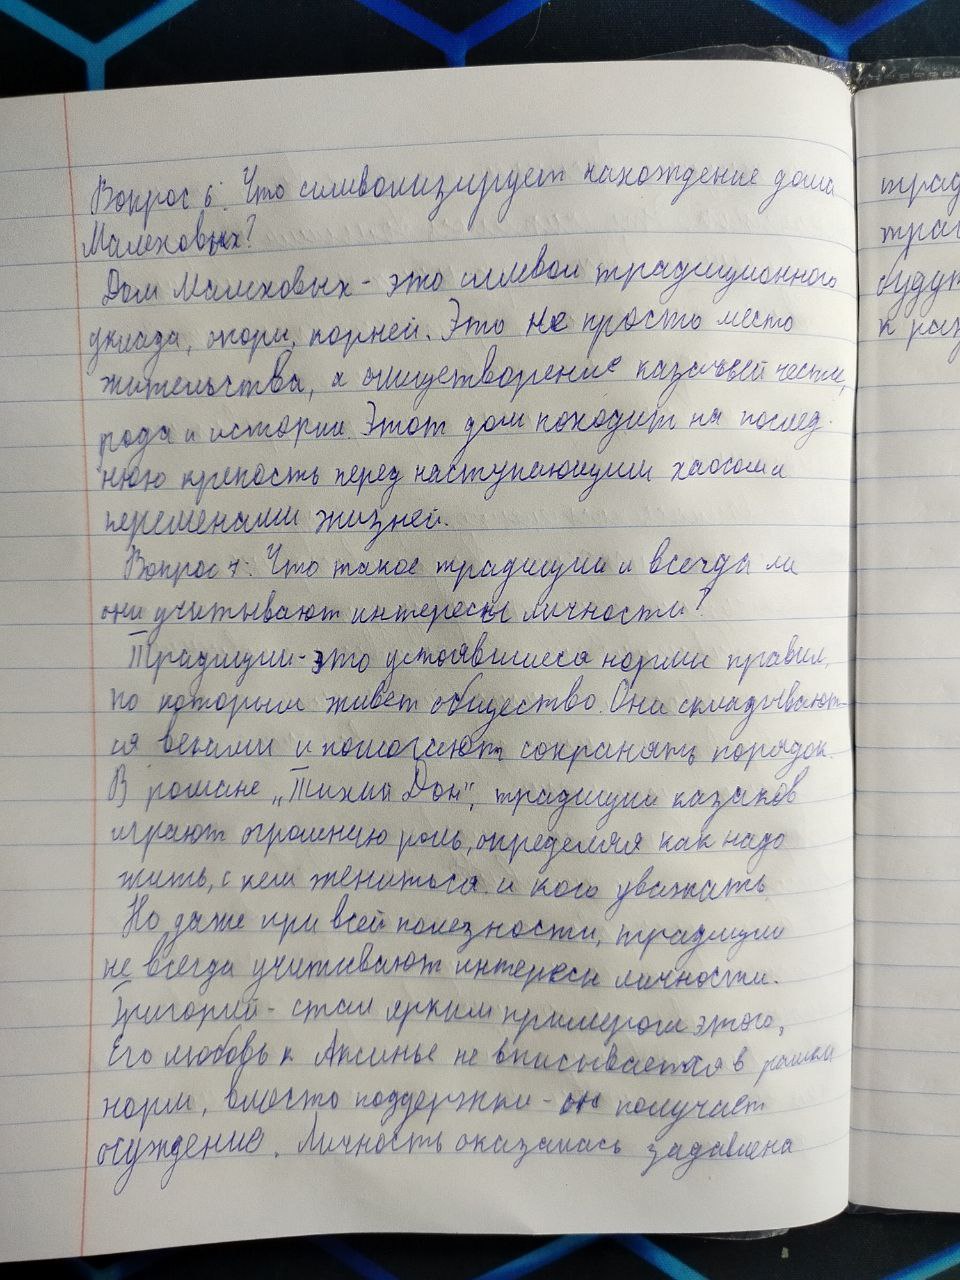 Вопрос 6: Что символизирует нахождение дома
Мелеховых?
Дом Мелеховых - это символ традиционного
уклада, опоры, корней. Это не просто место
жительства, а олицетворение казачьей чести,
рода и истории. Этот дом походит на послед-
нюю крепость перед наступающими хаосом и
переменами жизней.
Вопрос 7: Что такое традиции и всегда ли
они учитывают интересы личности?
Традиции - это устоявшиеся нормы правил,
по которым живет общество. Они складывают-
ся веками и помогают сохранять порядок.
В романе „Тихий Дон", традиции казаков
играют огромную роль, определяя как надо
жить, с кем жениться и кого уважать.
Но даже при всей полезности, традиции
не всегда учитывают интересы личности.
Григорий - стал ярким примером этого,
Его любовь к Аксинье не вписывается в рамки
норм, вместо поддержки - он получает
осуждение. Личность оказалась задавлена
трад
траг
будут
к раз